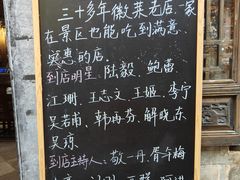 三十多年徽菜老店一家
在景区也能吃到满意
实惠的店.
到店明星、陆毅、鲍蕾.
江珊、王志文、王姬、李宁
吴若甫、韩再芬、解晓东
吴琼.
到店主持人、敬一丹、周梅